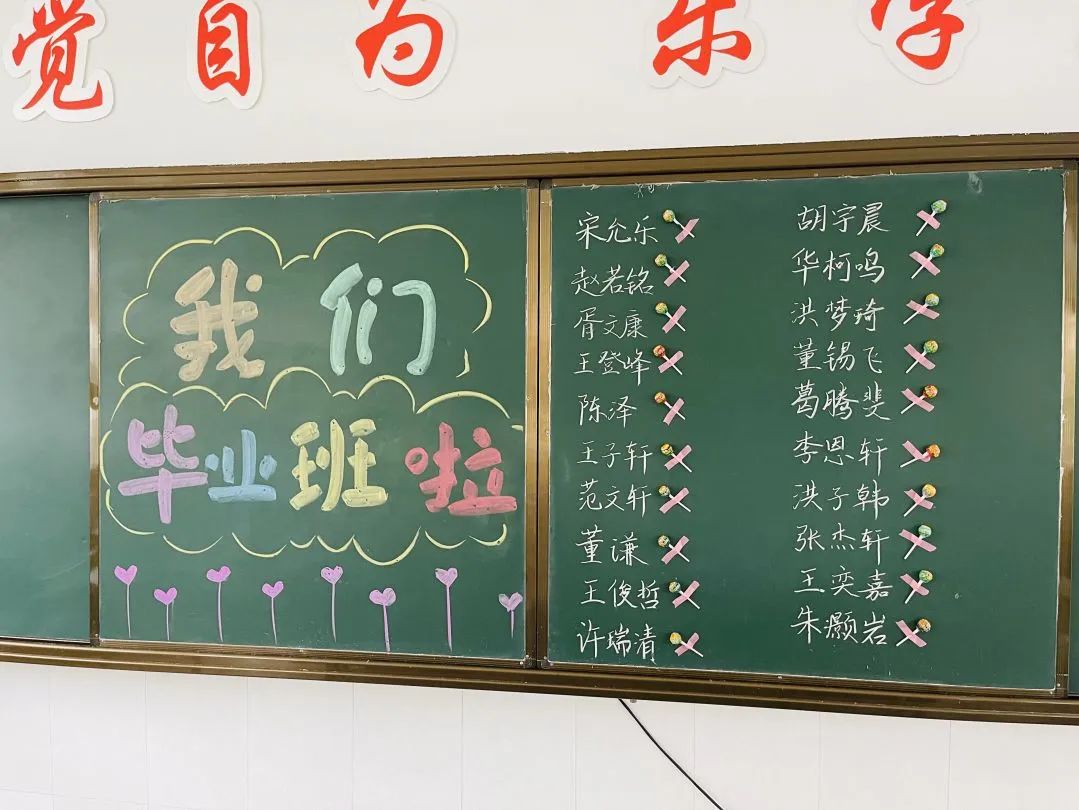 觉 自 为 乐 学
我们
毕业班啦
宋允乐
赵若铭
胥文康
王登峰
陈泽
王子轩
范文轩
董谦
王俊哲
许瑞清
胡宇晨
华柯鸣
洪梦琦
董锡飞
葛腾斐
李恩轩
洪子韩
张杰轩
王奕嘉
朱灏岩